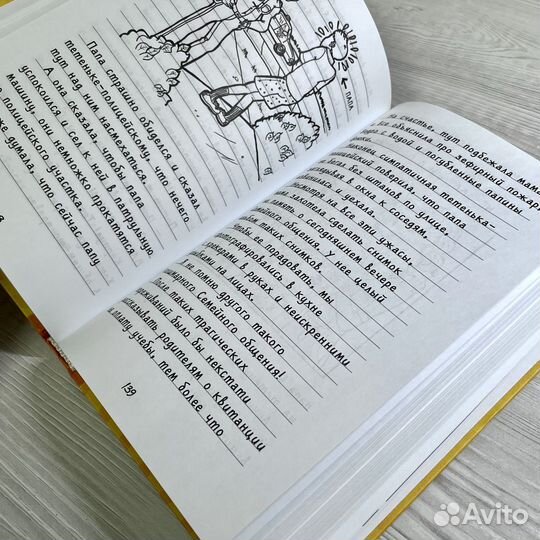 ПАПА
Папа страшно обиделся и сказал
тетеньке-полицейскому, что нечего
тут над ним насмехаться.
А она сказала, чтобы папа
успокоился и сел к ней в патрульную
машину, они немножко прокатятся
полицейского участка
же думала, что сейчас папу
счастье, тут подбежала мама
объяснила про зефирный пожар,
с водой и погубленные папины
симпатичная тетенька-
поверила, что папа
без штанов по улице,
в окна к соседям,
и уехала.
на все эти ужасы,
захотела сделать снимок
память о сегодняшнем вечере
общения. У нее целый
таких снимков.
Чтобы ее порадовать, мы
сфотографировались в кухне
в руках и неискренними
на лицах.
не помню другого такого
Семейного общения!
После таких трагических
было бы некстати
родителям о квитанции
оплату учебы, тем более что
139
Avito